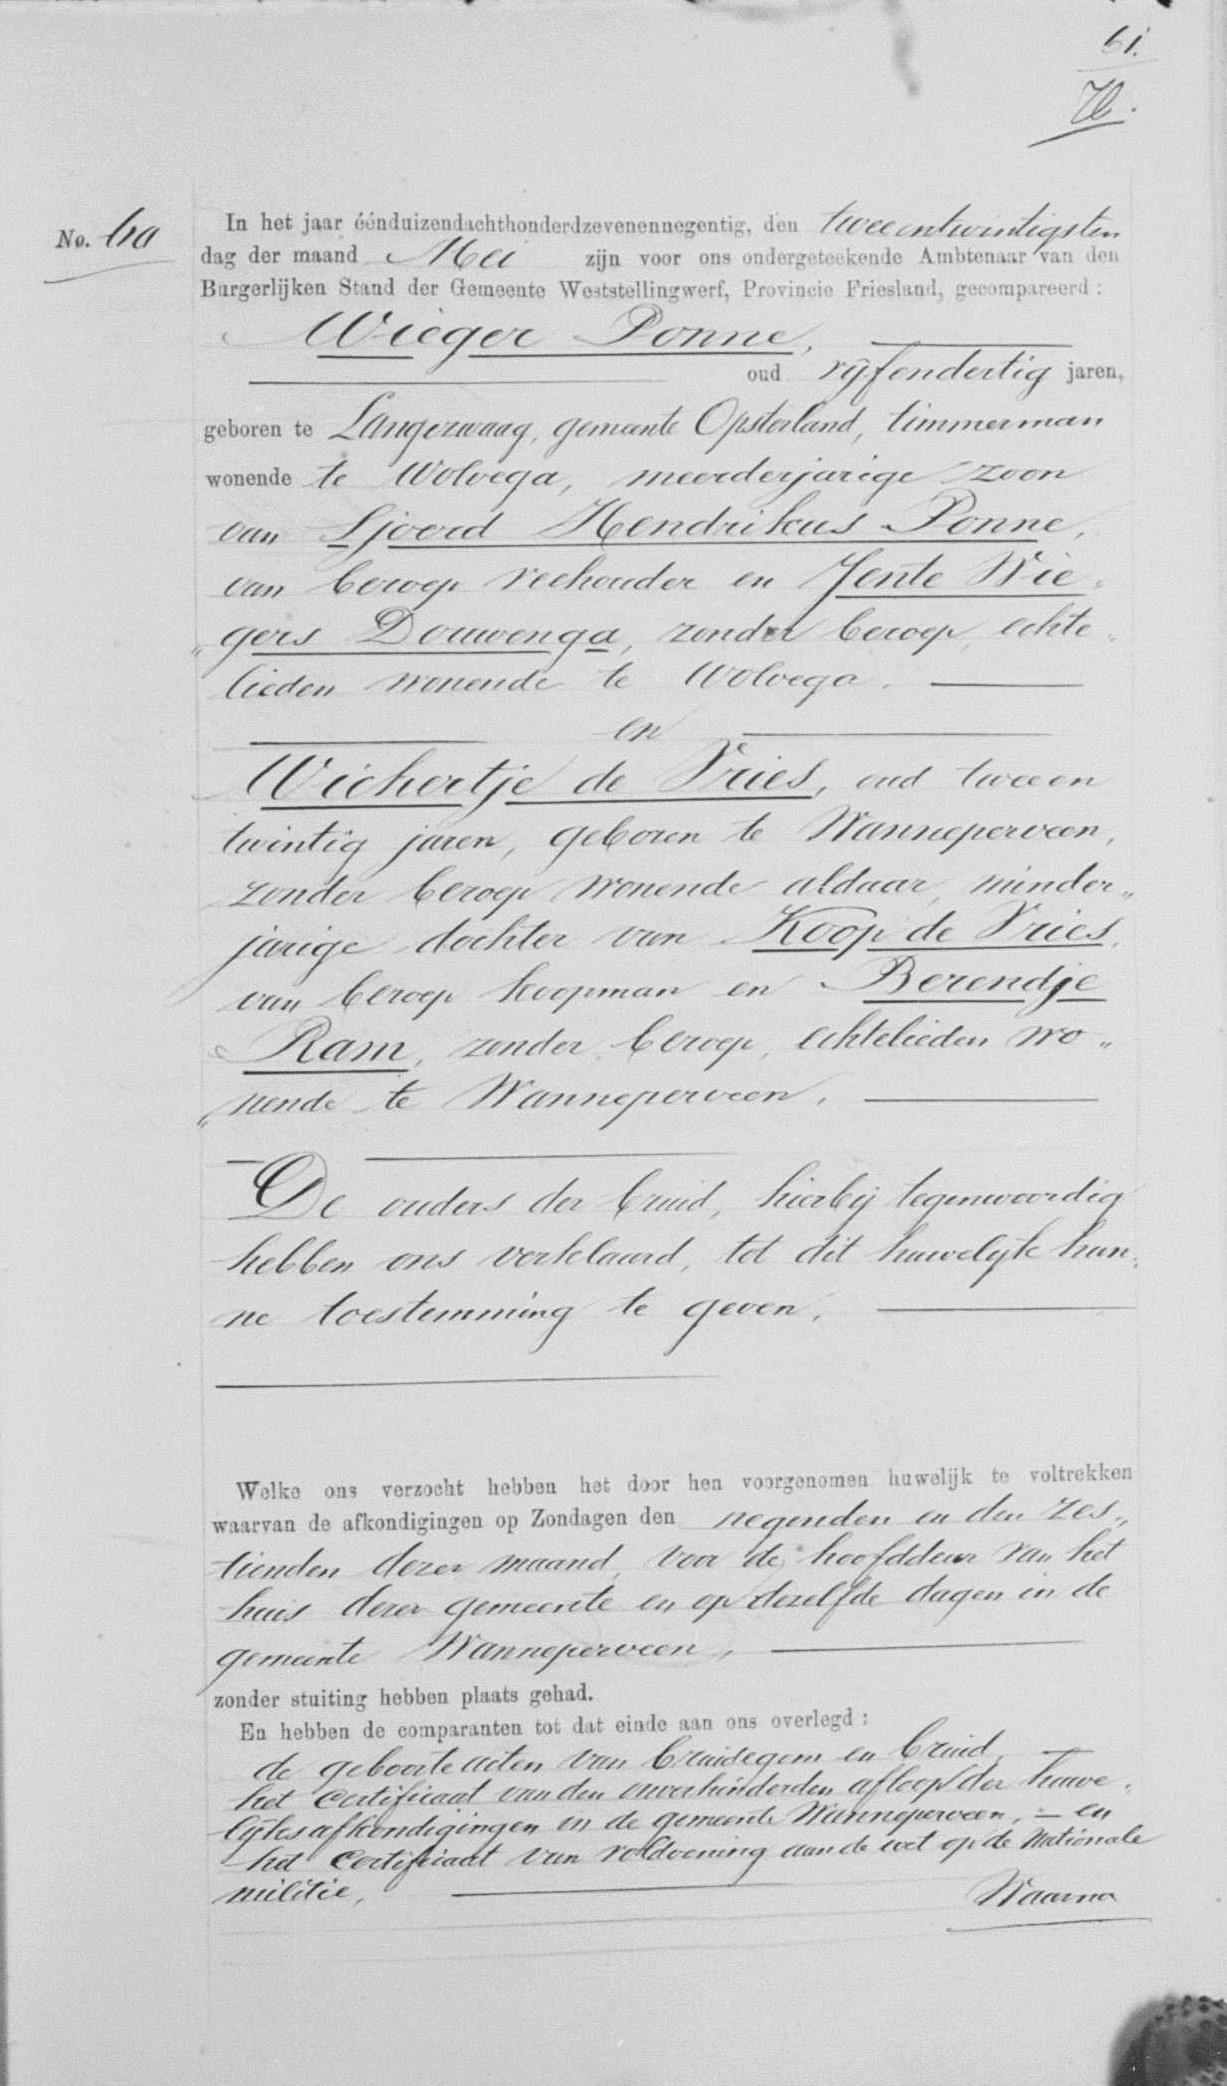 61.
No. 60
In het jaar éénduizendachthonderdzevenennegentig, den tweeentwintigsten
dag der maand Mei zijn voor ons ondergeteekende Ambtenaar van den
Burgerlijken Stand der Gemeente Weststellingwerf, Provincie Friesland, gecompareerd:
Wieger Ponne,
oud vijfendertig jaren,
geboren te Langezwaag, gemeente Opsterland, timmerman
wonende te Wolvega, meerderjarige zoon
van Sjoerd Hendrikus Ponne,
van beroep veehouder en Jente Wie„
„gers Douwenga, zonder beroep, echte„
lieden wonende te Wolvega.
en
Wichertje de Vries, oud tweeen
twintig jaren, geboren te Wanneperveen,
zonder beroep wonende aldaar, minder„
jarige dochter van Koop de Vries,
van beroep koopman en Berendje
Ram, zonder beroep, echtelieden wo„
„nende te Wanneperveen.
De ouders der bruid, hierbij tegenwoordig
hebben ons verklaard, tot dit huwelijk hun„
ne toestemming te geven.
Welke ons verzocht hebben het door hen voorgenomen huwelijk te voltrekken
waarvan de afkondigingen op Zondagen den negenden en den zes„
tienden dezer maand, voor de hoofddeur van het
huis dezer gemeente en op dezelfde dagen in de
gemeente Wanneperveen,
zonder stuiting hebben plaats gehad.
En hebben de comparanten tot dat einde aan ons overlegd:
de geboorteacten van bruidegom en bruid,
het certificaat van den onverhinderden afloop der huwe„
lijksafkondigingen in de gemeente Wanneperveen, — en
het certificaat van voldoening aan de wet op de Nationale
militie,
Waarna